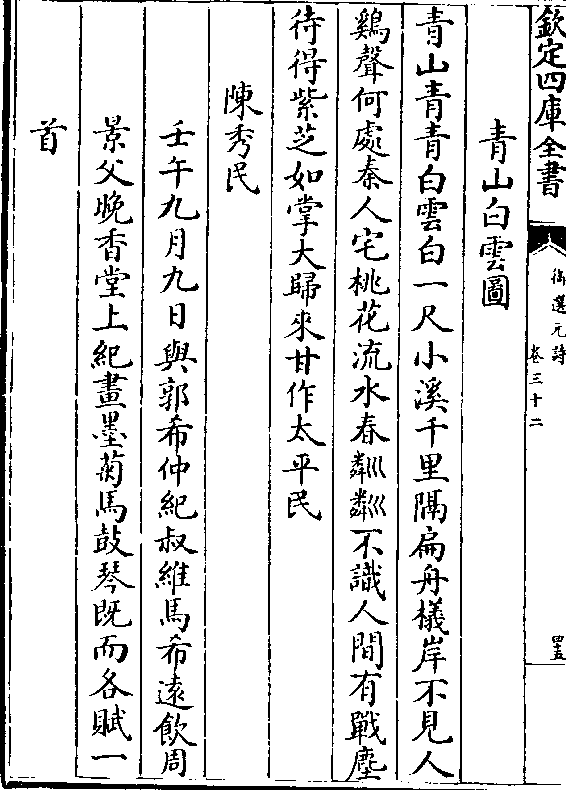 欽定四庫全書
御選元詩
卷三十二
四五
青山白雲圖
青山青青白雲白一尺小溪千里隔扁舟檥岸不見人
鷄聲何處秦人宅桃花流水春粼粼不識人間有戰塵
待得紫芝如掌大歸來甘作太平民
陳秀民
壬午九月九日與郭希仲紀叔維馬希遠飲周
景父晚香堂上紀畫墨菊馬鼓琴既而各賦一
首